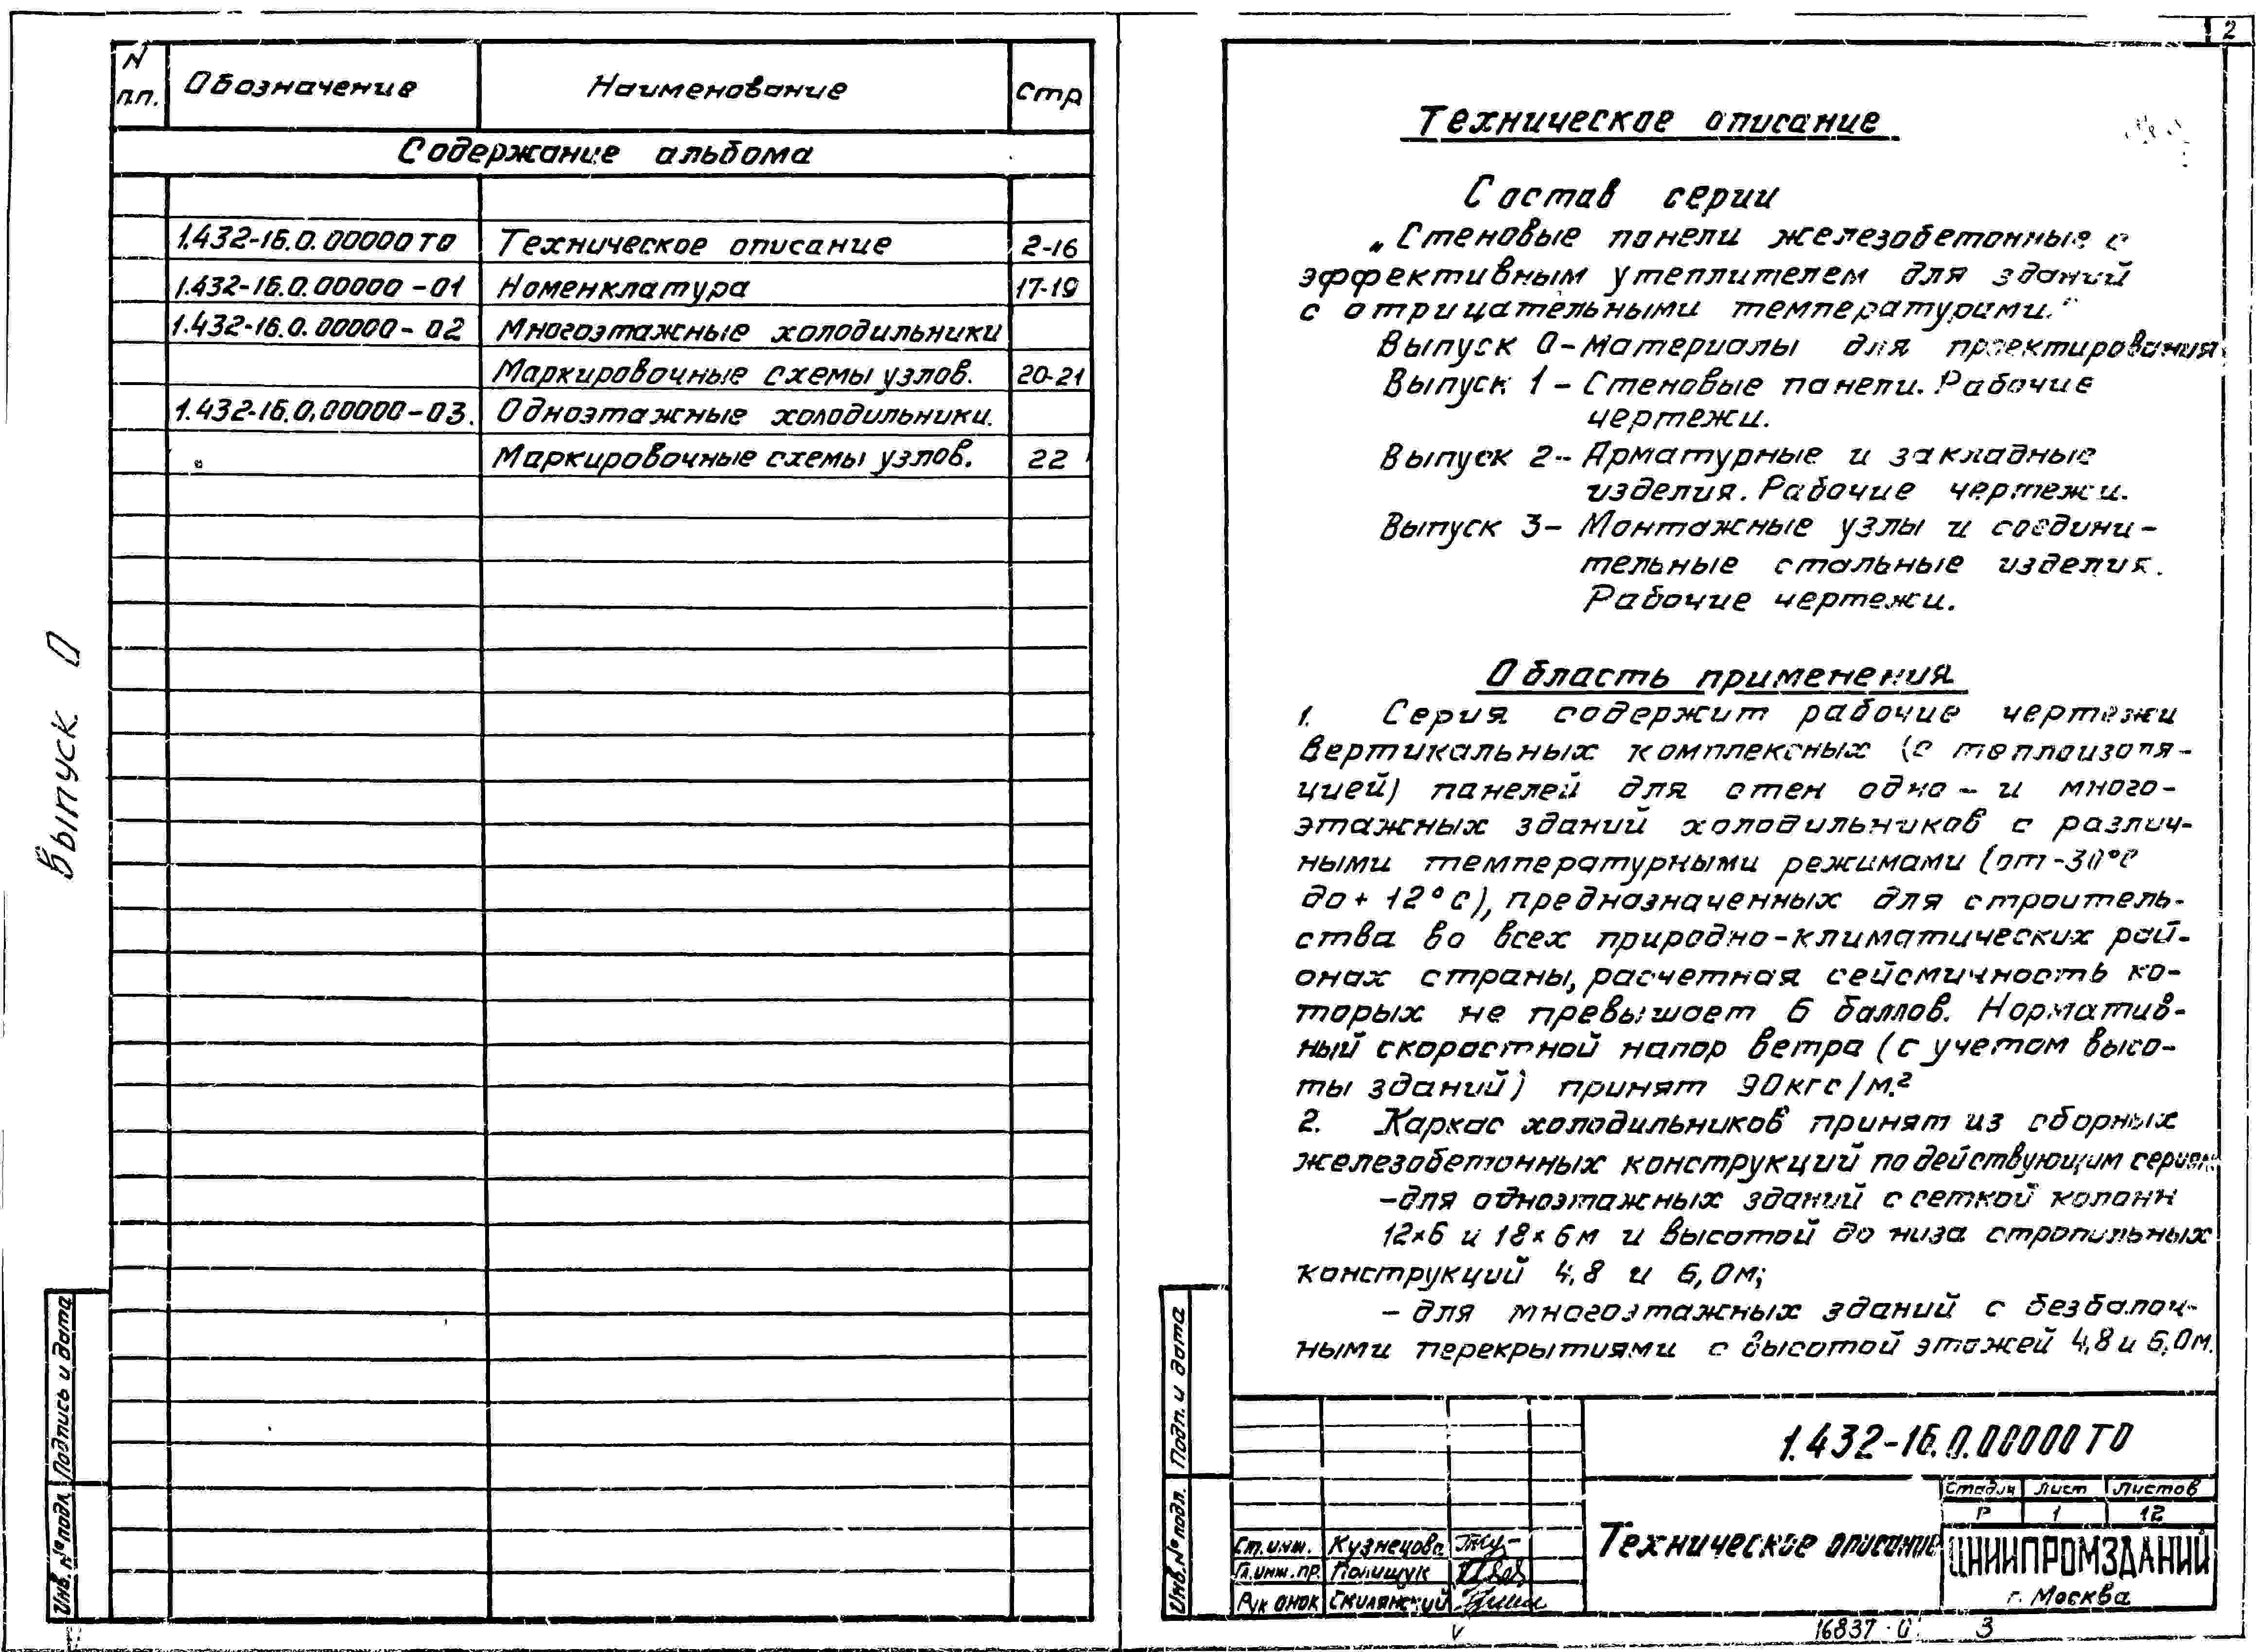 N п.п. Обозначение Наименование Стр
Содержание альбома
1.432-16.0.00000ТО Техническое описание 2-16
1.432-16.0.00000-01 Номенклатура 17-19
1.432-16.0.00000-02 Многоэтажные холодильники
Маркировочные схемы узлов. 20-21
1.432-16.0.00000-03. Одноэтажные холодильники.
Маркировочные схемы узлов. 22
Выпуск 0
Подпись и дата
Инв.№ подл.
2
Техническое описание
Состав серии
„Стеновые панели железобетонные с
эффективным утеплителем для зданий
с отрицательными температурами."
Выпуск 0-Материалы для проектирования
Выпуск 1 - Стеновые панели. Рабочие
чертежи.
Выпуск 2-- Арматурные и закладные
изделия. Рабочие чертежи.
Выпуск 3- Монтажные узлы и соедини-
тельные стальные изделия.
Рабочие чертежи.
Область применения
1. Серия содержит рабочие чертежи
вертикальных комплексных (с теплоизоля-
цией) панелей для стен одно- и много-
этажных зданий холодильников с различ-
ными температурными режимами (от-30°С
до + 12°С), предназначенных для строитель-
ства во всех природно-климатических рай-
онах страны, расчетная сейсмичность ко-
торых не превышает 6 баллов. Норматив-
ный скоростной напор ветра (с учетом высо-
ты зданий) принят 90кгс/м.²
2. Каркас холодильников принят из сборных
железобетонных конструкций по действующим сериям
-для одноэтажных зданий с сеткой колонн
12×6 и 18×6м и высотой до низа стропильных
конструкций 4,8 и 6,0м;
- для многоэтажных зданий с безбалоч-
ными перекрытиями с высотой этажей 4,8 и 6,0м.
Подп. и дата
Инв.№ подл.
1.432-16.0.00000ТО
Стадия Лист Листов
Р 1 12
Техническое описание
ЦНИИПРОМЗДАНИЙ
г. Москва
Ст. инж. Кузнецова
Гл. инж. пр. Полищук
Рук ОНОК Смилянский
16837-0 3